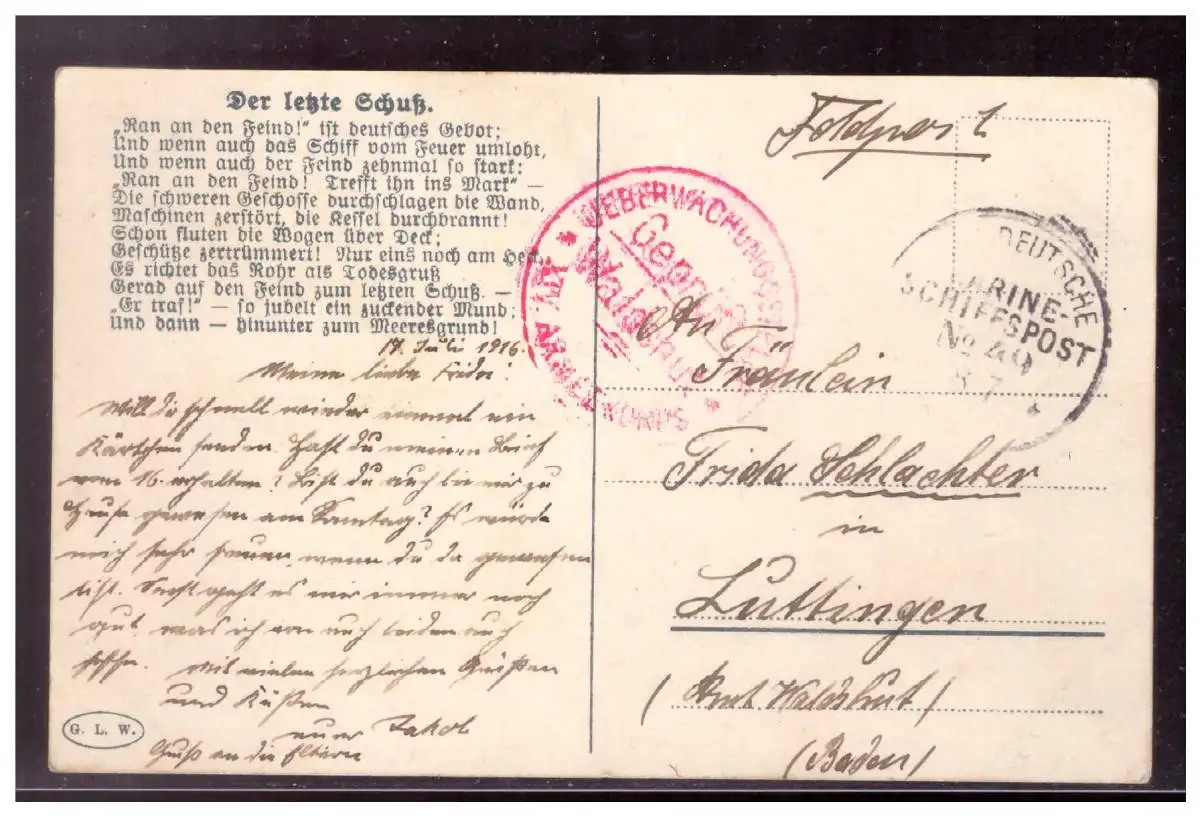 Der letzte Schuß.
„Ran an den Feind!“ ist deutsches Gebot;
Und wenn auch das Schiff vom Feuer umloht,
Und wenn auch der Feind zehnmal so stark:
„Ran an den Feind! Trefft ihn ins Mark“ —
Die schweren Geschosse durchschlagen die Wand,
Maschinen zerstört, die Kessel durchbrannt!
Schon fluten die Wogen über Deck;
Geschütze zertrümmert! Nur eins noch am Heck,
Es richtet das Rohr als Todesgruß
Gerad auf den Feind zum letzten Schuß. —
„Er traf!“ — so jubelt ein zuckender Mund;
Und dann — hinunter zum Meeresgrund!
17. Juli 1916.
Meine liebe Frida!
Will Dir schnell wieder einmal ein
Kärtchen senden. Hast Du meinen Brief
vom 16. erhalten? Bist Du auch bei mir zu
Hause gewesen am Sonntag? Es würde
mich sehr freuen, wenn Du da gewesen
bist. Sonst geht es mir immer noch
gut, was ich von euch beiden auch
hoffe. Mit vielen herzlichen Grüßen
und Küßen
euer Jakob
Gruß an die Eltern
G. L. W.
UEBERWACHUNGSSTELLE
XIV ARMEEKORPS
Geprüft
Waldshut
Feldpost
DEUTSCHE
MARINE-
SCHIFFSPOST
No 49
7
An
Fräulein
Frida Schlachter
in
Luttingen
(Amt Waldshut)
(Baden)